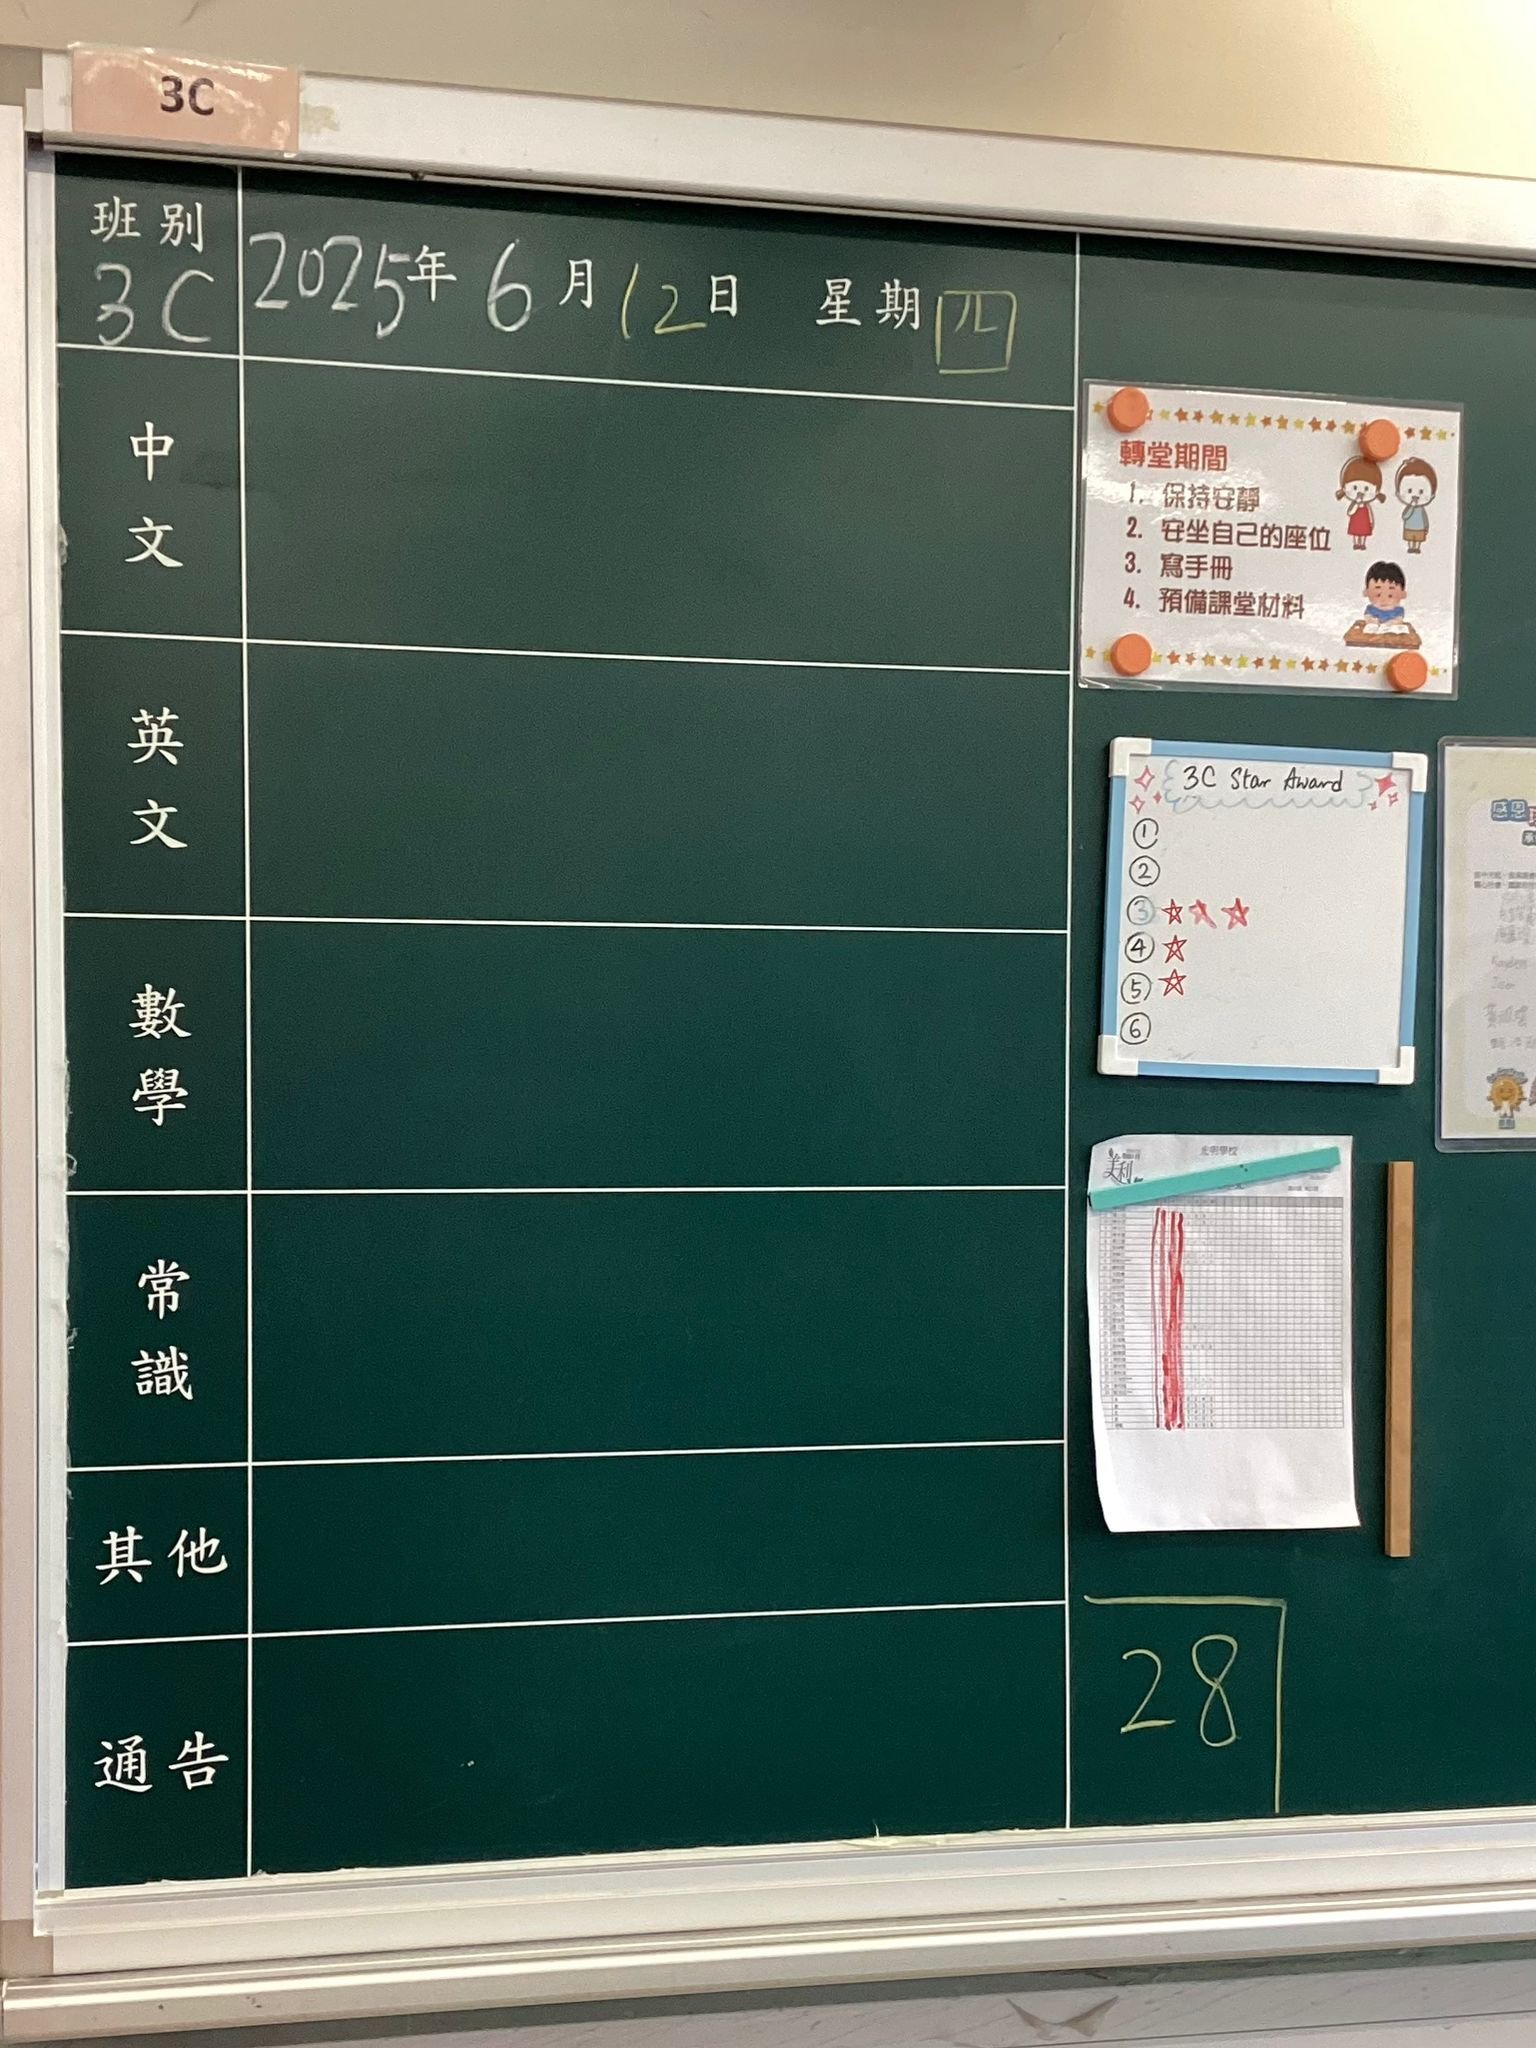 3C
班別
3C
2025年 6月12日 星期四
中文
英文
數學
常識
其他
通告
轉堂期間
1. 保持安靜
2. 安坐自己的座位
3. 寫手冊
4. 預備課堂材料
3C Star Award
①
②
③
④
⑤
⑥
感恩
28